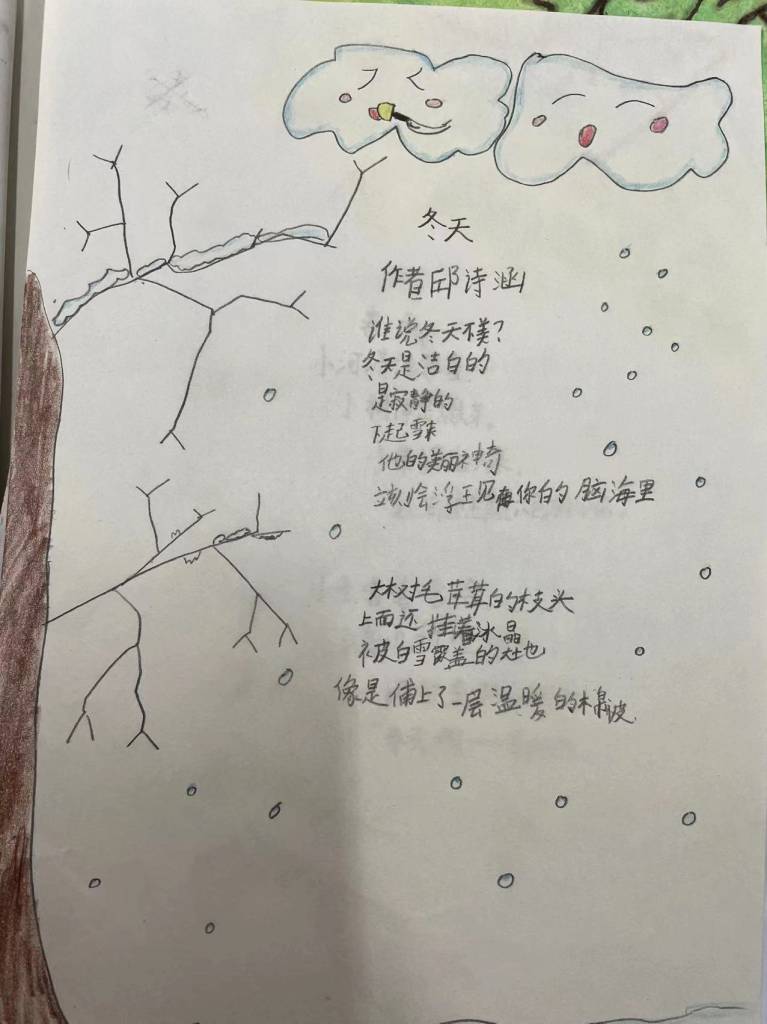 冬天
作者邱诗涵
谁说冬天不美?
冬天是洁白的
是寂静的
下起雪来
他的美丽神奇
立刻绘浮现在你的脑海里
大树毛茸茸的枝头
上面还挂着冰晶
被白雪覆盖的大地
像是铺上了一层温暖的棉被.